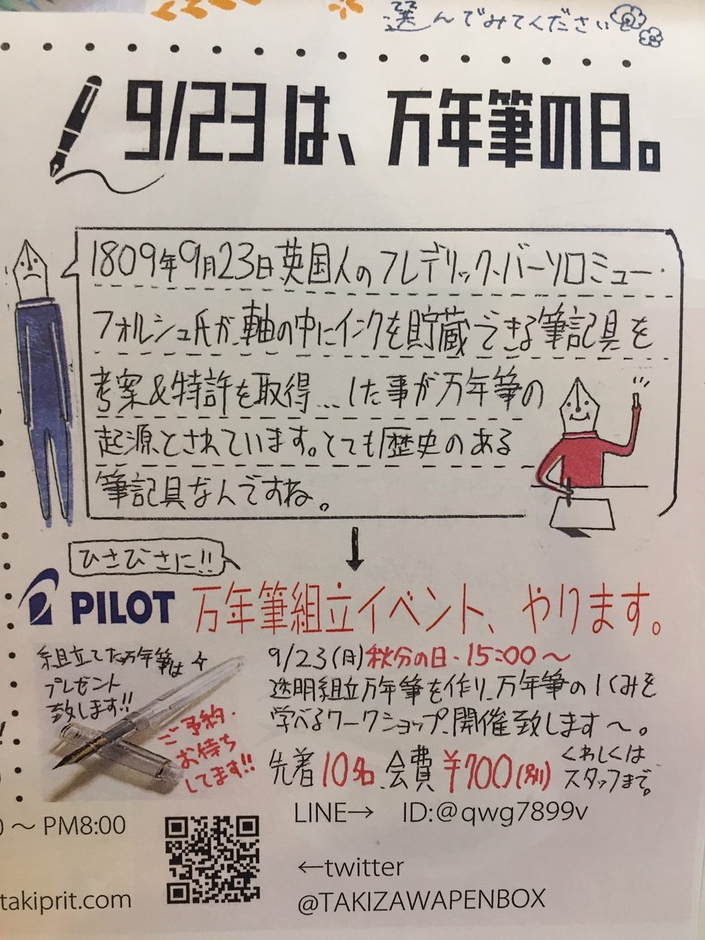 選んでみてください
9/23は、万年筆の日。
1809年9月23日英国人のフレデリック・バーソロミュー・
フォルシュ氏が、軸の中にインクを貯蔵できる筆記具を
考案&特許を取得…した事が万年筆の
起源とされています。とても歴史のある
筆記具なんですね。
ひさびさに!!
PILOT 万年筆組立イベント、やります。
組立てた万年筆は
プレゼント
致します!!
ご予約・
お待ち
してます!!
9/23(月)秋分の日・15:00〜
透明組立万年筆を作り、万年筆のしくみを
学べるワークショップ、開催致します〜。
先着10名、会費¥700(税別)
くわしくは
スタッフまで。
〜 PM8:00
LINE→ ID:@qwg7899v
←twitter
takiprit.com
@TAKIZAWAPENBOX